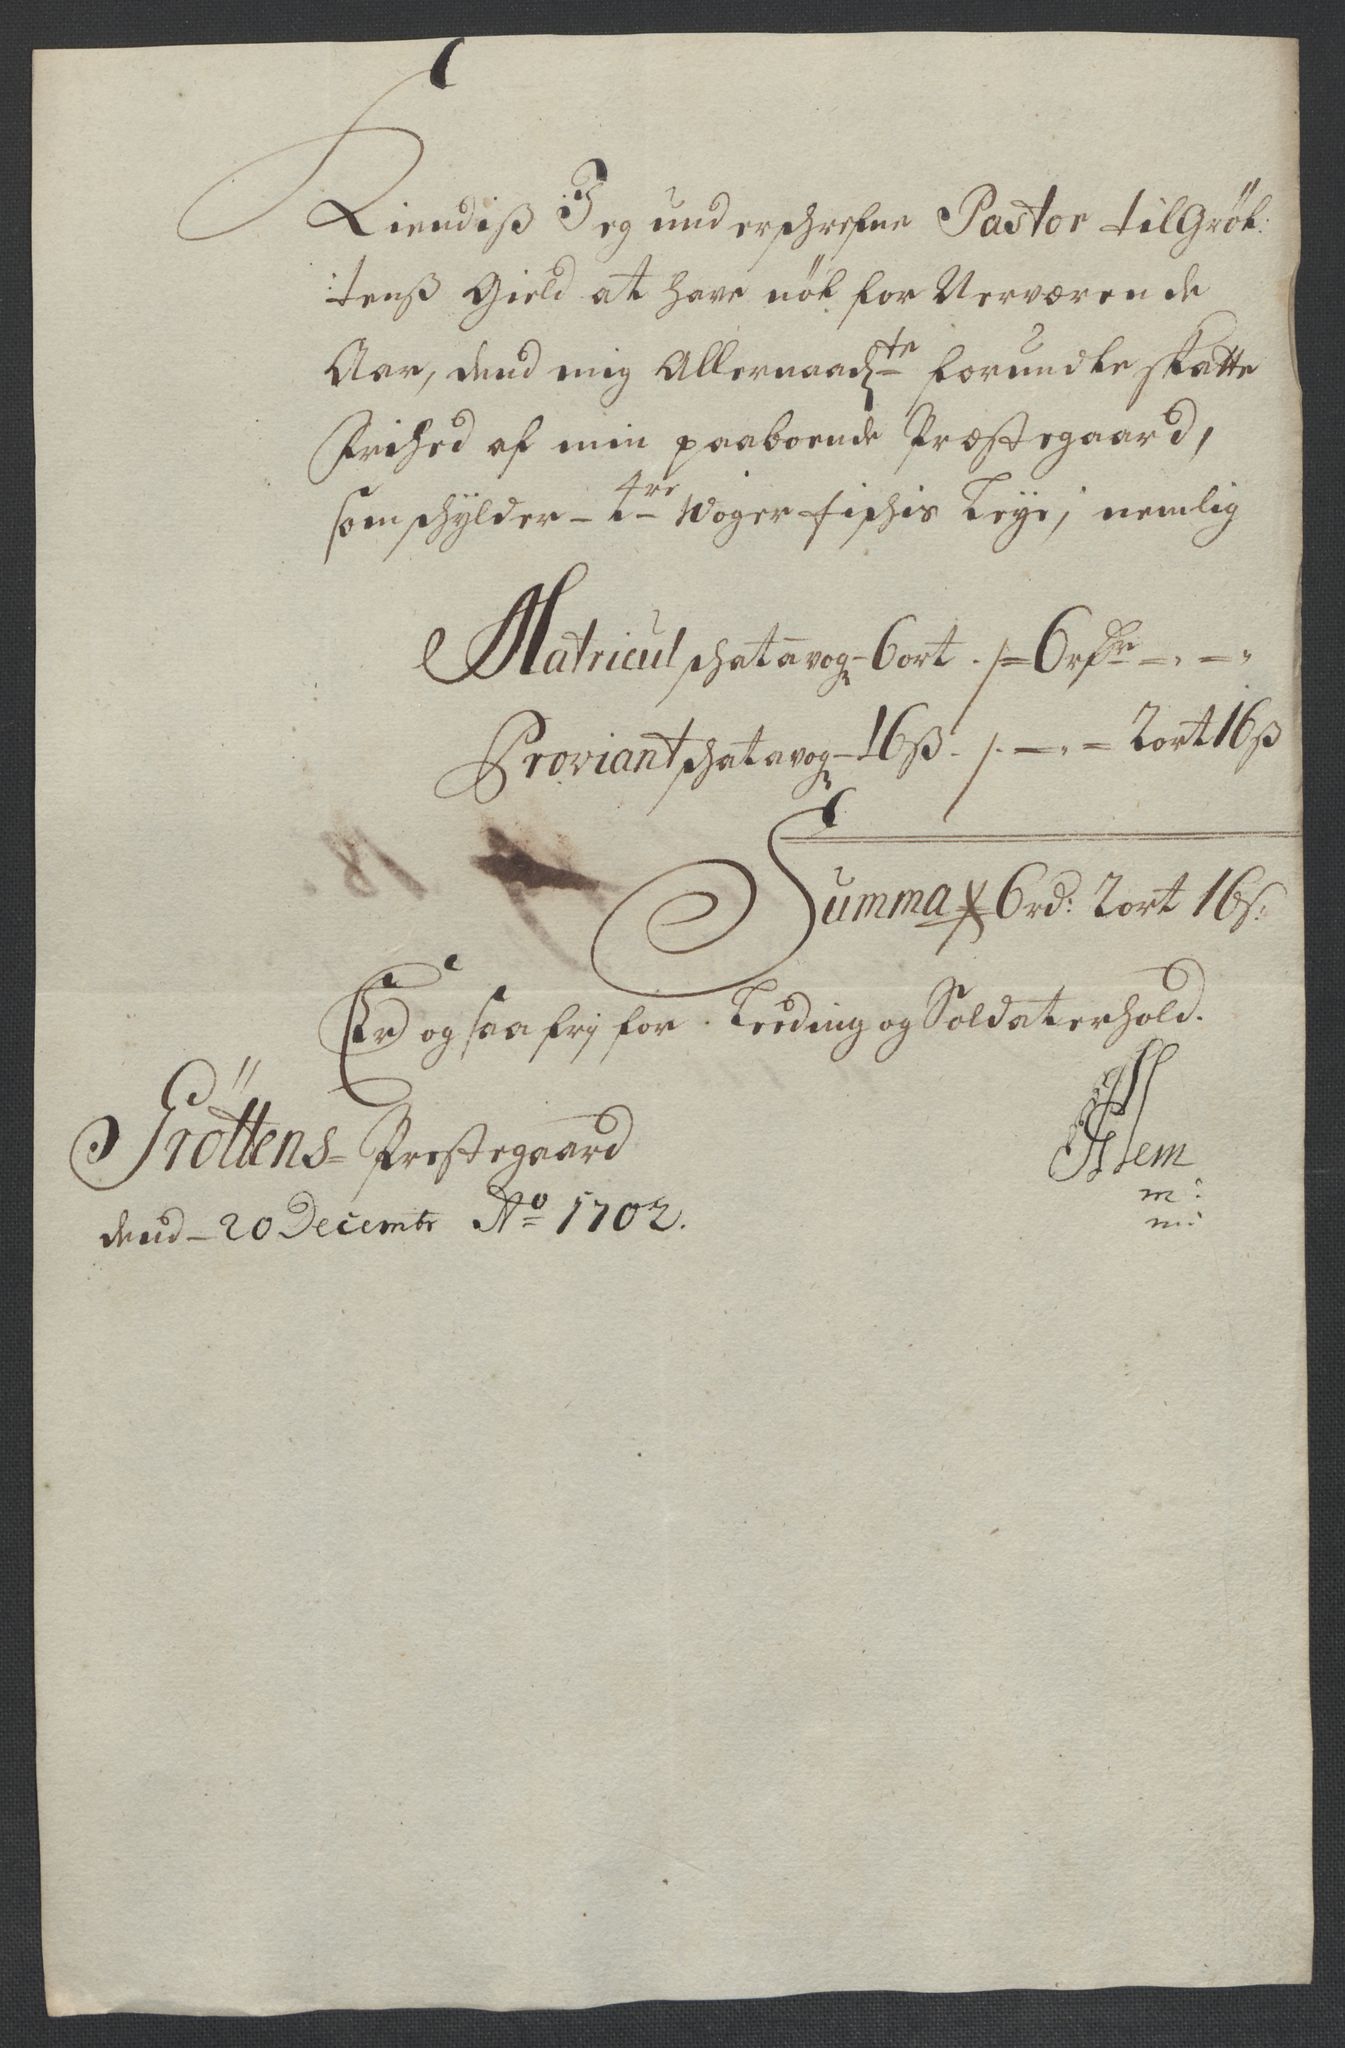 Kiendiß Jeg underschrefne Pastor til Gröt:
:tenß Gield at have nöt for Nerværende
Aar, dend mig Allernaadigste forundte skatte
Frihed af min paaboende Præstegaard,
som schylder - 4re Woger fischis Leye, nemlig
Matricul schat a vog - 6 ort ./= 6 rdr - " - "
Proviant schat a vog - 16 ß ./. - " = 2 ort 16 ß
Summa 6 rd: 2 ort 16 s:
Er og saa frj for Leeding og Soldaterhold.
Gröttens = Prestegaard
dend - 20 Decembr Ao 1702.
m:
m: